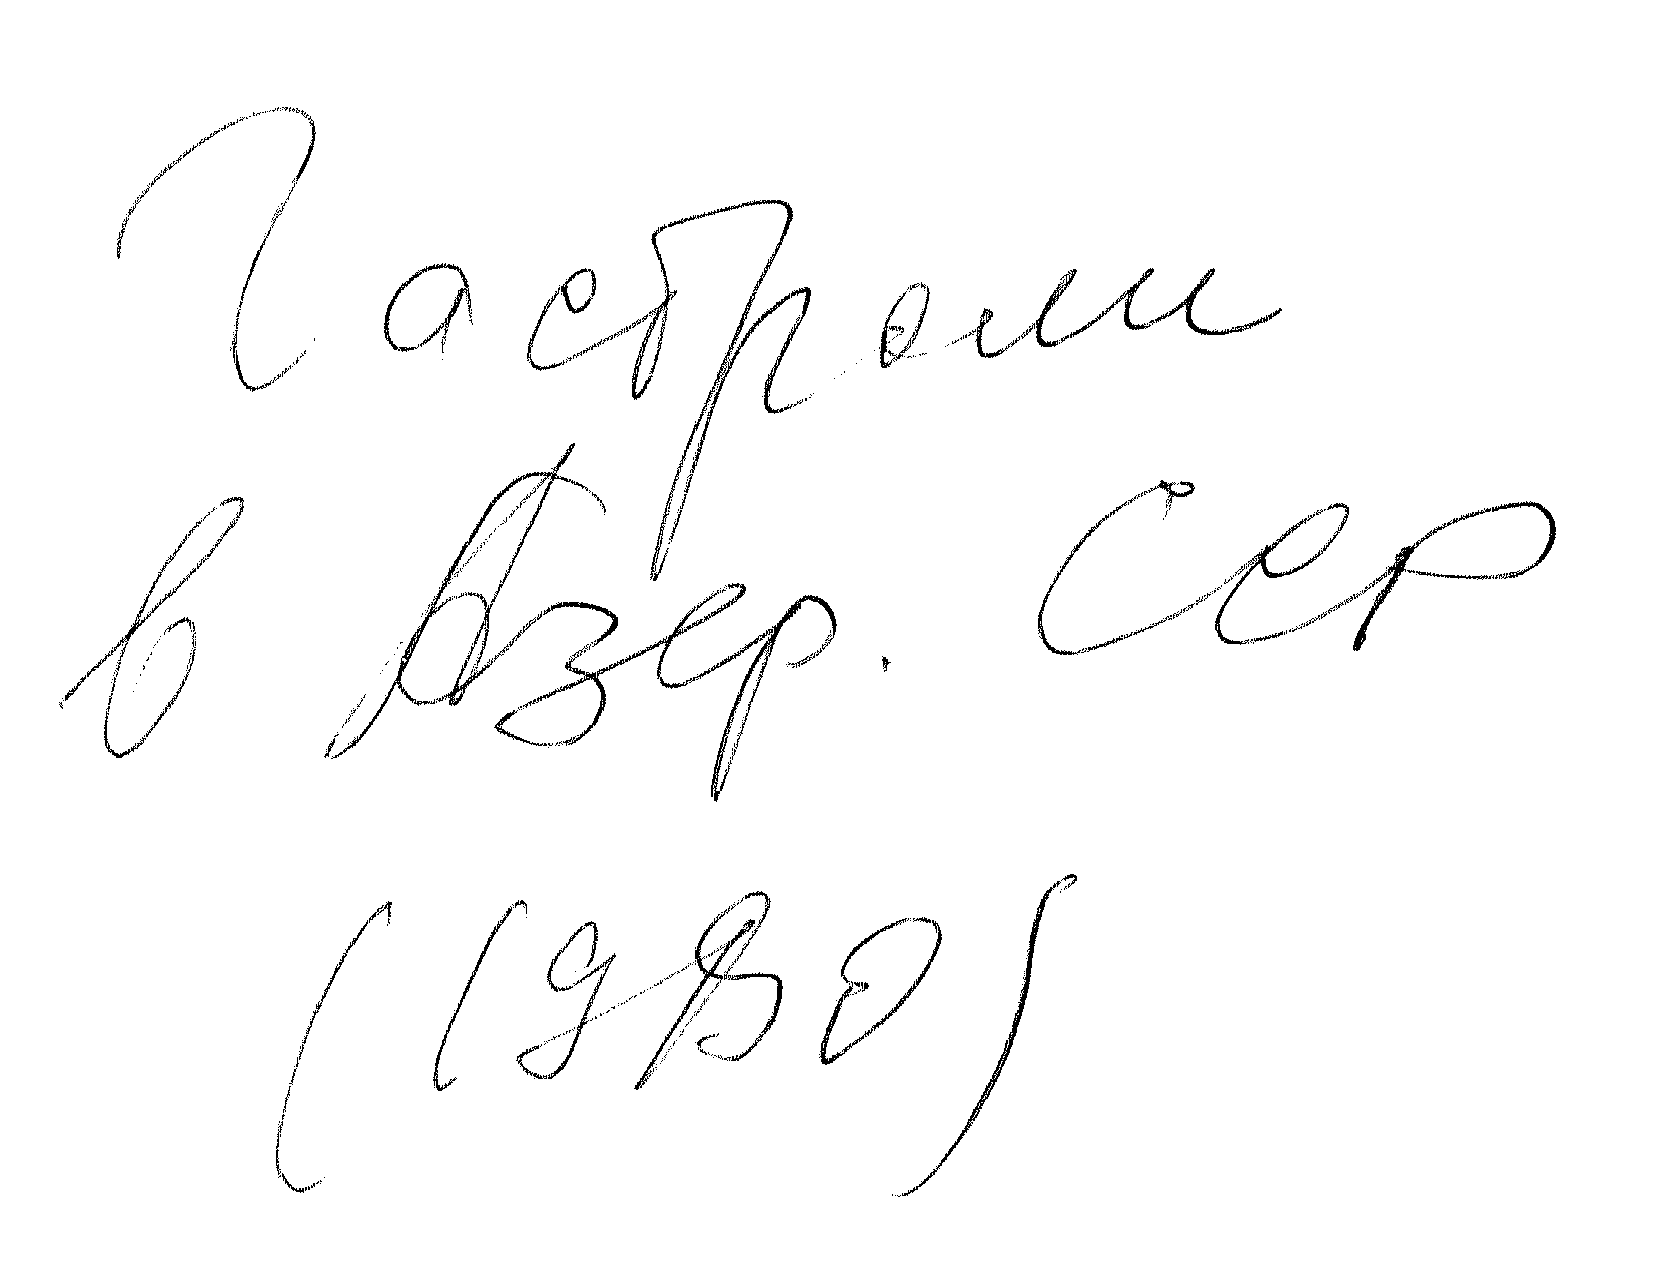 Гастроли
в Азер. ССР
(1980)